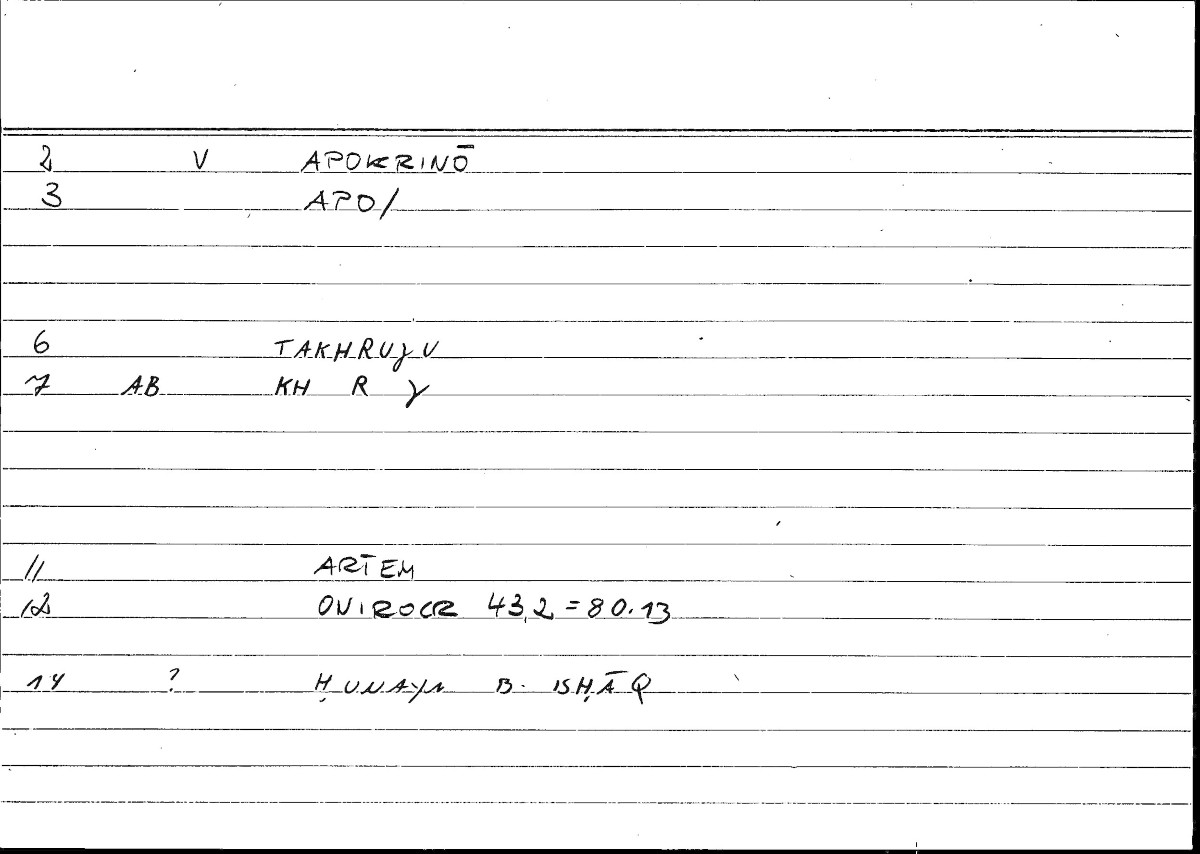 2 V APOKRINŌ
3 APO/
6 TAKHRUJU
7 AB KH R J
11 ARTEM
12 ONIROCR 43,2 = 80.13
14 ? ḤUNAYN B. ISḤĀQ